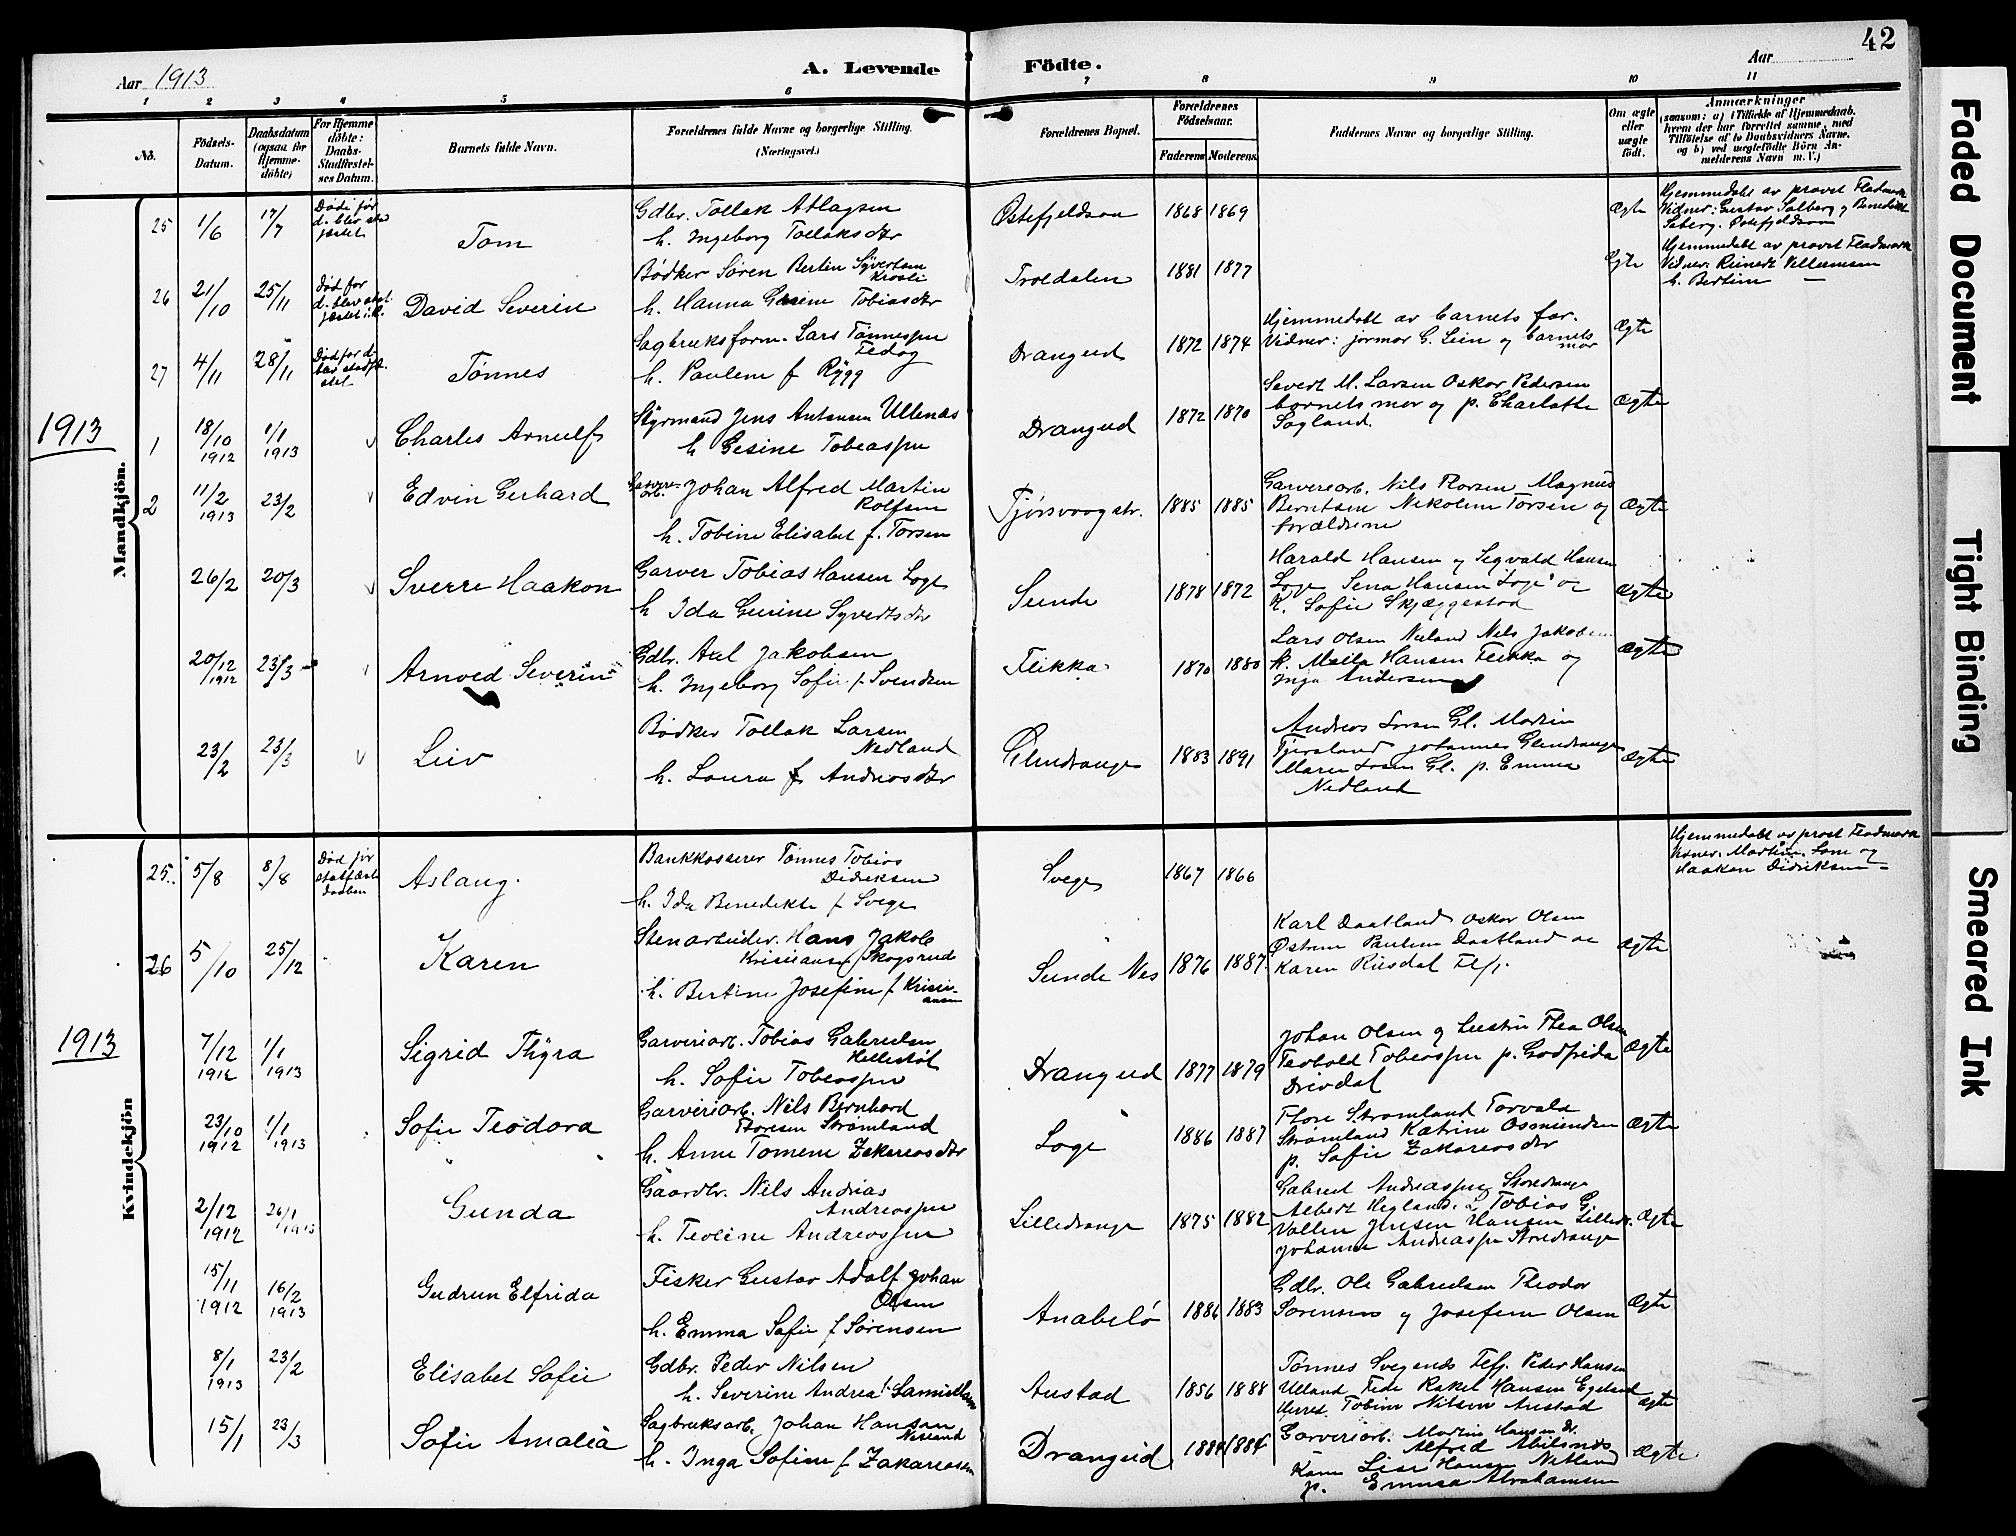 42
Aar 1913
A. Levende
Födte.
Aar
1 2 3 4 5 6 7 8 9 10 11
No.
Födsels-Datum.
Daabsdatum (ogsaa for Hjemme-döbte)
For Hjemme döbte: Daabs-Stadfæstel-ses Datum.
Barnets fulde Navn.
Forældrenes fulde Navne og borgerlige Stilling.
(Næringsvei.)
Forældrenes Bopæl.
Forældrenes Födselsaar.
Faderens Moderens
Faddernes Navne og borgerlige Stilling.
Om ægte eller uægte födt.
Anmærkninger
(saasom: a) i Tilfælde af Hjemmedaab, hvem der har forrettet samme, med Tilföielse af to Daabsvidners Navne, og b) ved uegtefödte Börn An-melderens Navn m. V.)
Mandkjön.
25 1/6 17/7 Døde før d. blev sta
Tom
Gdbr. Tollak Atlagsen
h. Ingeborg Tollaksdtr
Østefjeldsaa 1868 1869
Ægte
Hjemmedøbt av provst Fladmark
Vidner: Gustav Salberg og Benedikt
26 21/10 25/11 Død før
David Severin
Bødker Søren Bertin Syvertsen
h. Hanna Gesine Tobiasdtr
Troldalen 1881 1877
Egte
Hjemmedøbt av provst Fladmark
h. Bertine
27 4/11 28/11
Tønnes
Sagbruksform. Lars Tønnesen
h. Pauline f Rygg
Drangeid 1872 1874
Hjemmedøbt av barnets far.
Vidner: jormor G. Lein og barnets mor
Ægte
1913
1 18/10 1912 1/1 1913
Charles Arnulf
Styrmand Jens Antonsen Ullenæs
h Gesine Tobiaspn
Drangeid 1872 1870
Severt M. Larsen Oskar Pedersen
barnets mor og p. Charlotte
Sogland.
Ægte
2 11/2 1913 23/2
Edvin Gerhard
Garveriarb. Johan Alfred Martin
Rolfsen
h. Tobine Elisabet f. Torsen
Tjørsvaagstr. 1885 1885
Garveriarb. Nils Thorsen Magnus
Berntsen Nikoline Torsen og
forældrene
Ægte
26/2 20/3
Sverre Haakon
Garver Tobias Hansen Loge
h Ida Gurine Syvertsdtr
Sunde 1878 1872
Harald Hansen og Sigvald Hansen
Loge Sena Hansen Loge og
k. Sofie Skjæggestad
Ægte
20/12 1912 23/3
Arnold Severin
Gdbr. Axel Jakobsen
h. Ingeborg Sofie f Svendsen
Flikka 1870 1880
Lars Olsen Nuland Nils Jakobsen
k. Malla Hansen Flikka og
Inga Andersen
Ægte
23/2 23/3
Leiv
Bødker Tollak Larsen
Nedland
h. Laura f Andreasdtr
Glendrange 1883 1891
Andreas Larsen Gl. Martin
Fjersland Johannes Glendrange
Maren Larsen Gl. p. Emma
Nedland
Ægte
Kvindekjön
25 5/8 8/8 Død før stadfæst daaben
Aslaug.
Bankkasserer Tønnes Tobias
Didriksen
h. Ida Benedikte f Svege
Svege 1867 1866
Hjemmedøbt av prost Fladmark
Haakon Didriksen
26 5/10 25/12
Karen
Stenarbeider. Hans Jakob
Kristiansen Skogsrud
h. Bertine Josefine f Kristiansen
Sunde Nes 1876 1887
Karl Daatland Oskar Olsen
Østrem Pauline Daatland og
Karen Risdal Flfj.
Ægte
1913
7/12 1912 1/1 1913
Sigrid Thyra
Garveriarb. Tobias Gabrielsen
Hellestøl
h. Sofie Tobiaspn
Drangeid 1877 1879
Johan Olsen og hustru Thea Olsen
Teobald Tobiaspn p. Godfrida
Drivdal
Ægte
23/10 1912 1/1 1913
Sofie Teodora
Garveriarb. Nils Bernhard
Thoresen Strømland
h. Anne Tomine Zakariasdtr
Loge 1886 1887
Thore Strømland Torvald
Strømland Katrine Osmundsen
p. Sofie Zakariasdtr
Ægte
2/12 1912 26/1 1913
Gunda
Gaardbr. Nils Andrias
Andreaspn
h. Teoline Andreaspn
Lilledrange 1875 1882
Gabriel Andreaspn Storedrange
Albert Hegland. Tobias G.
Vallen Jensen Hansen Lilledr.
Johanne Andreaspn Storedrange
Ægte
15/11 1912 16/2 1913
Gudrun Elfrida
Fisker Gustav Adolf Johan
Olsen
h. Emma Sofie f Sørensen
Anabelø 1886 1883
Gdbr. Ole Gabrielsen Theodor
Sørensen og Josefine Olsen
Ægte
8/1 1913 23/2
Elisabet Sofie
Gdbr. Peder Nilsen
h. Severine Andrea
Austad 1856 1888
Tønnes Svegends Flfj. Peder Hansen
Ueland Fede Rakel Hansen Egeland
Tobine Nilsen Austad
Ægte
15/1 23/3
Sofie Amalia
Sagbruksarb. Johan Hansen
h. Inga Sofine f Zakariassen
Drangeid 1884 1884
Garveriarb. Martin Hansen Dr.
Alfred
Lise Hansen
p. Emma Abrahamsen
Ægte
Faded Document
Tight Binding
Smeared Ink